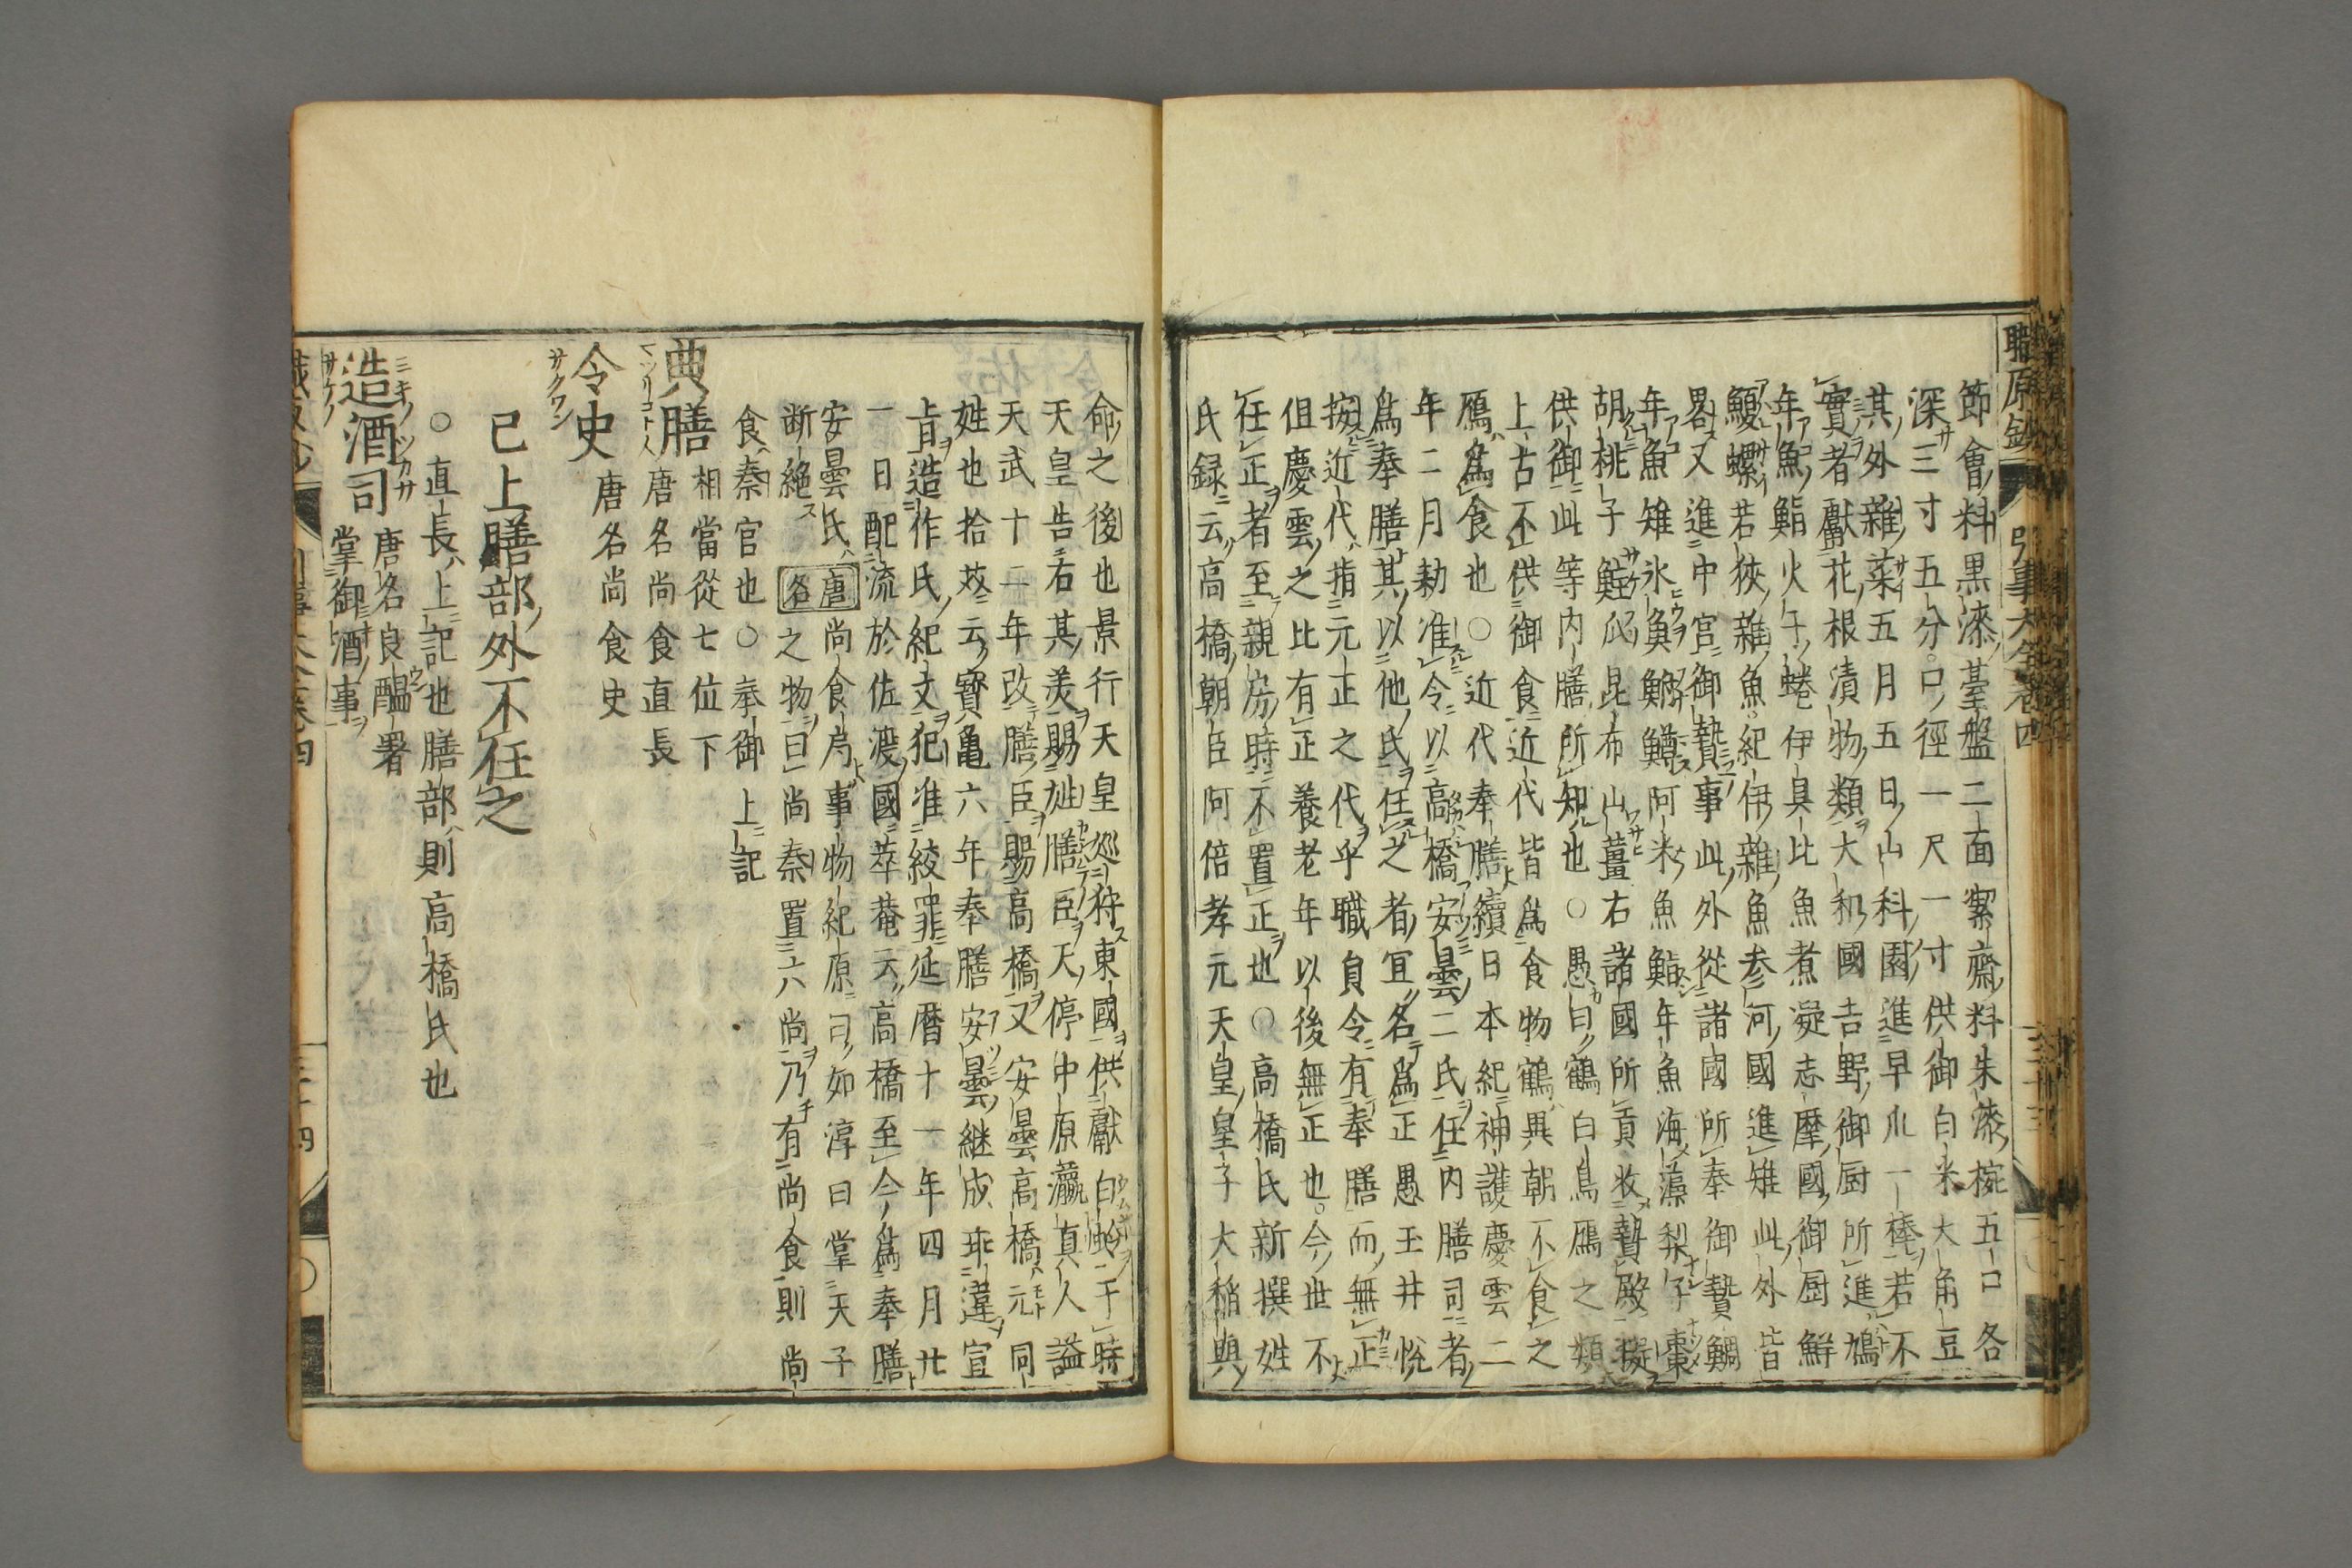 職原鈔 引事大全卷四 三十三
節會料黒漆臺盤二面潔齋料朱漆椀五口各
深三寸五分口徑一尺一寸供御白米大角豆
其外雜菜五月五日山科園進早瓜一棒若不
實者獻花根漬物類大和國吉野御厨所進鳩
年魚鮨火干蜷伊具比魚煮凝志摩國御厨鮮
鰒螺若狹雜魚紀伊雜魚参河國進雉此外皆
畧又進中宮御贄事此外從諸國所奉御贄鯛
年魚雉氷魚鮒鱒阿米魚鮨年魚海藻梨子棗
胡桃子鮭瓜昆布山薑右諸國所貢收贄殿擬
供御此等内膳所知也○愚曰鶴白鳥鴈之類
上古不供御食近代皆爲食物鶴異朝不食之
鴈爲食也○近代奉膳續日本紀神護慶雲二
年二月勅准令以高橋安曇二氏任内膳司者
爲奉膳其以他氏任之者宜名爲正愚玉井悦
按近代指元正之代乎職員令有奉膳而無正
但慶雲之比有正養老年以後無正也今世不
任正者至親房時不置正也○高橋氏新撰姓
氏録云高橋朝臣阿倍孝元天皇皇子大稲輿
命之後也景行天皇巡狩東國供獻白蛤于時
天皇告右其美賜姓膳臣天停中原瀛真人謚
天武十二年改膳臣賜高橋又安曇高橋元同
姓也拾芥云寳亀六年奉膳安曇継成乖違宣
旨造作氏紀文犯准絞罪延暦十一年四月廿
一日配流於佐渡國萃菴云高橋至今爲奉膳
安曇氏断絶唐名尚食局事物紀原曰如淳曰掌天子
之物曰尚秦置六尚乃有尚食則尚
食秦官也○奉御上記
典膳 相當從七位下
唐名尚食直長
令史 唐名尚食史
已上膳部外不任之
○直長上記也膳部則高橋氏也
造酒司 唐名良醞署
掌御酒事